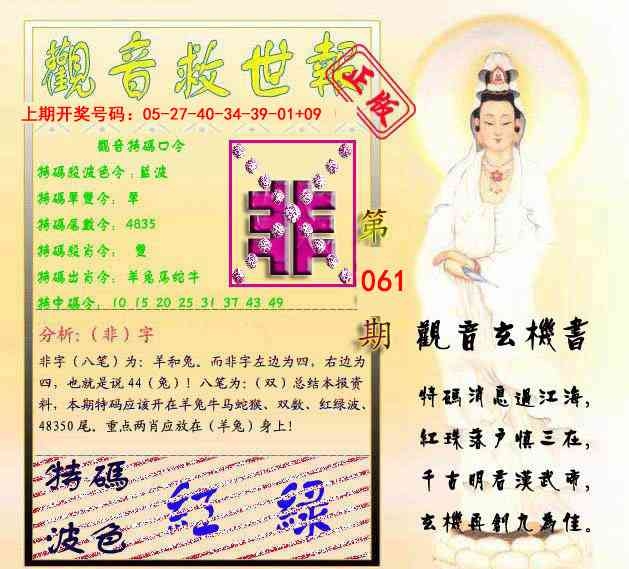 觀音救世報
正版
上期开奖号码：05-27-40-34-39-01+09
觀音特碼口令
特碼段波色令：藍波
特碼單雙令： 單
特碼尾數令： 4835
特碼段肖令： 雙
特碼出肖令：羊兔馬蛇牛
特中碼令： 10 15 20 25 31 37 43 49
非
第
061
期
分析:（非）字
非字（八笔）为：羊和兔。而非字左边为四，右边为
四，也就是说 44（兔）！八笔为：（双）总结本报资
料，本期特码应该开在羊兔牛马蛇猴、双数、红绿波、
48350 尾。重点两肖应放在（羊兔）身上！
特碼
波色
紅 綠
觀音玄機書
特碼消息過江海，
紅珠落戶慎三在，
千古明君漢武帝，
玄機再創九為佳。